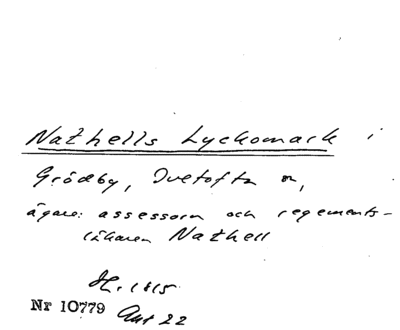 Nathells Lyckomark i
Grödby, Ivetofta sn,
ägare: assessorn och regements-
läkaren Nathell
H. 1815
Nr 10779 Ant 22